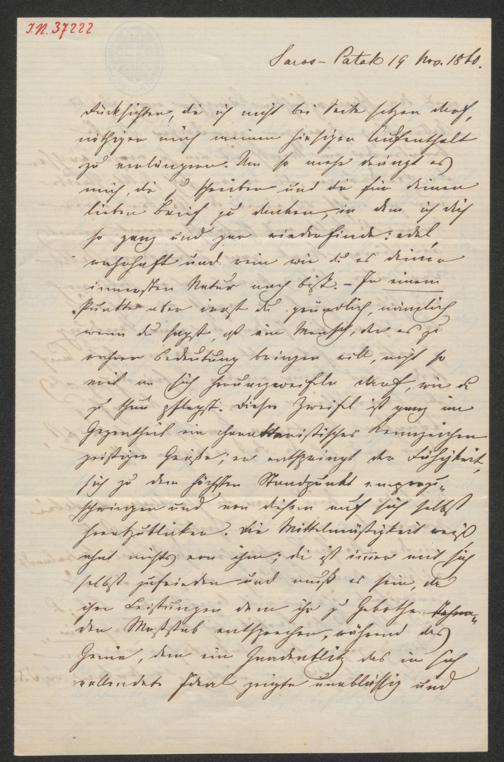 I.N. 37222
Saros-Patak 19 Nov. 1860.
Rücksichten, die ich nicht bei Seite setzen darf,
nöthigen mich meinen hiesigen Aufenthalt
zu verlängern. Um so mehr drängt es
mich, dir zu schreiben und dir für deinen
lieben Brief zu danken, in dem ich dich
so ganz und gar wiederfinde: edel,
wahrhaft und rein wie du es deiner
innersten Natur nach bist. – In einem
Punkte aber irrst du gründlich, nämlich
wenn du sagst, daß ein Mensch, der es zu
wahrer Bedeutung bringen will, nicht so
viel an sich herumzweifeln darf, wie du
zu thun pflegst. Dieser Zweifel ist ganz im
Gegentheil ein charakteristisches Kennzeichen
geistiger Größe; er entspringt der Fähigkeit,
sich zu dem höchsten Standpunkt empor zu
schwingen und von diesem auf sich selbst
herabzublicken. Die Mittelmäßigkeit weiß
nichts von ihm; die ist immer mit sich
selbst zufrieden und muß es sein, da
ihre Leistungen dem ihr zu Gebothe stehen-
den Maßstab entsprechen, während das
Genie, dem ein Gnadenblitz das in sich
vollendete Ideal zeigte unablässig und